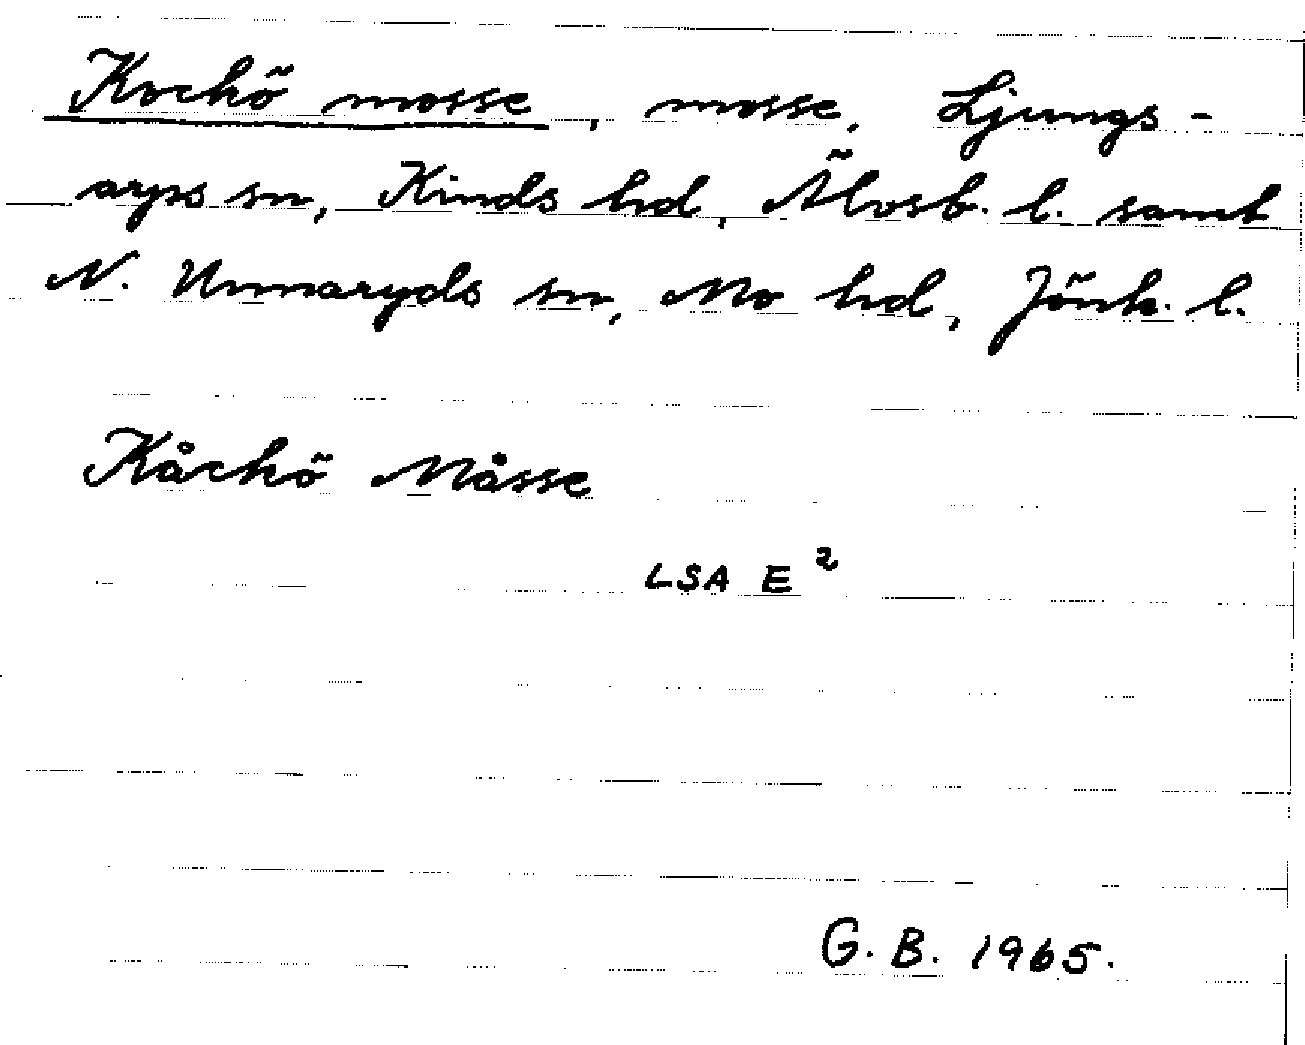 Kockö mosse, mosse, Ljungs-
arps sn, Kinds hd, Älvsb. l. samt
N. Unnaryds sn, Mo hd, Jönk. l.
Kåckö Måsse
LSA E²
G. B. 1965.